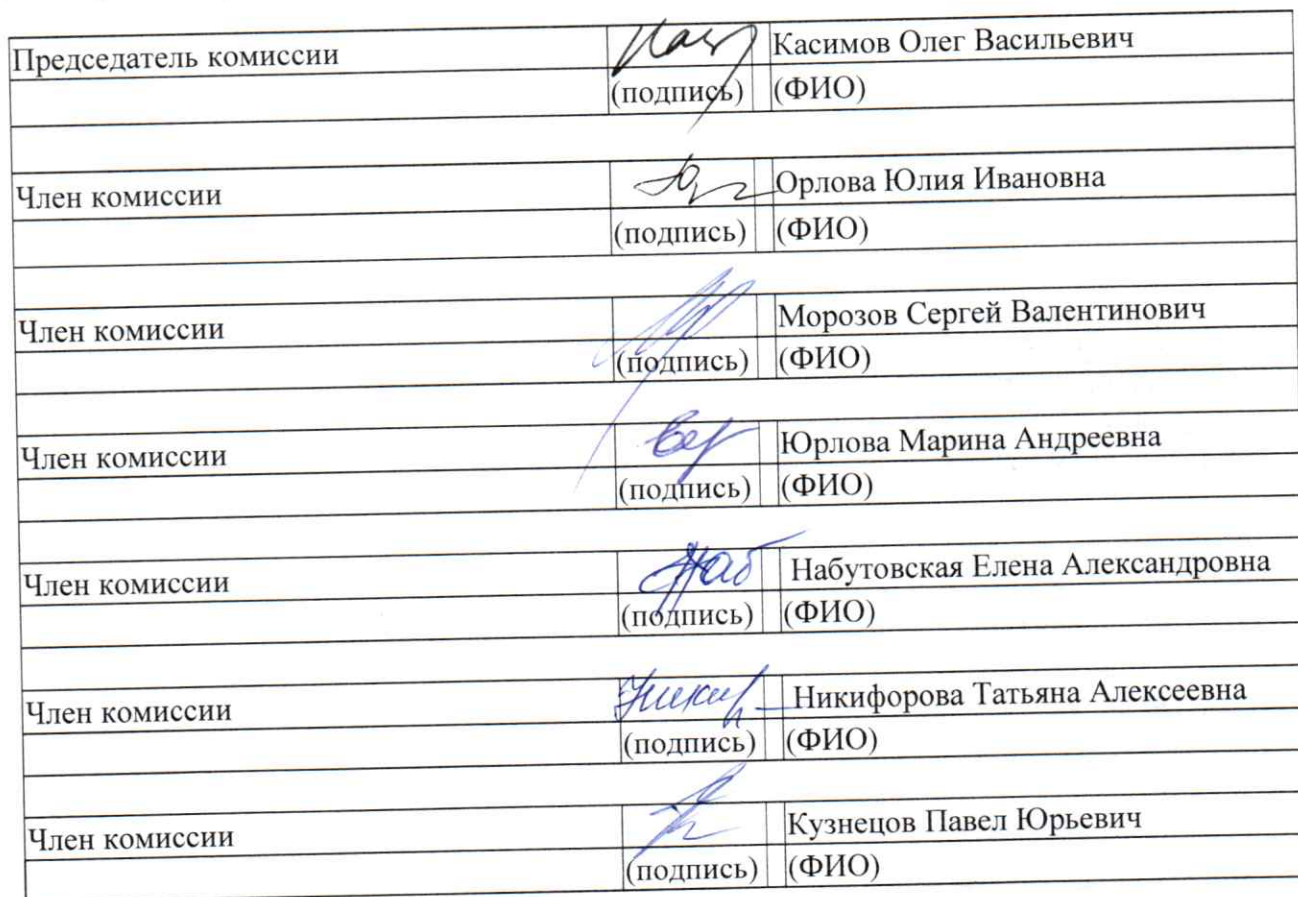 Председатель комиссии Касимов Олег Васильевич
(подпись) (ФИО)
Член комиссии Орлова Юлия Ивановна
(подпись) (ФИО)
Член комиссии Морозов Сергей Валентинович
(подпись) (ФИО)
Член комиссии Юрлова Марина Андреевна
(подпись) (ФИО)
Член комиссии Набутовская Елена Александровна
(подпись) (ФИО)
Член комиссии Никифорова Татьяна Алексеевна
(подпись) (ФИО)
Член комиссии Кузнецов Павел Юрьевич
(подпись) (ФИО)